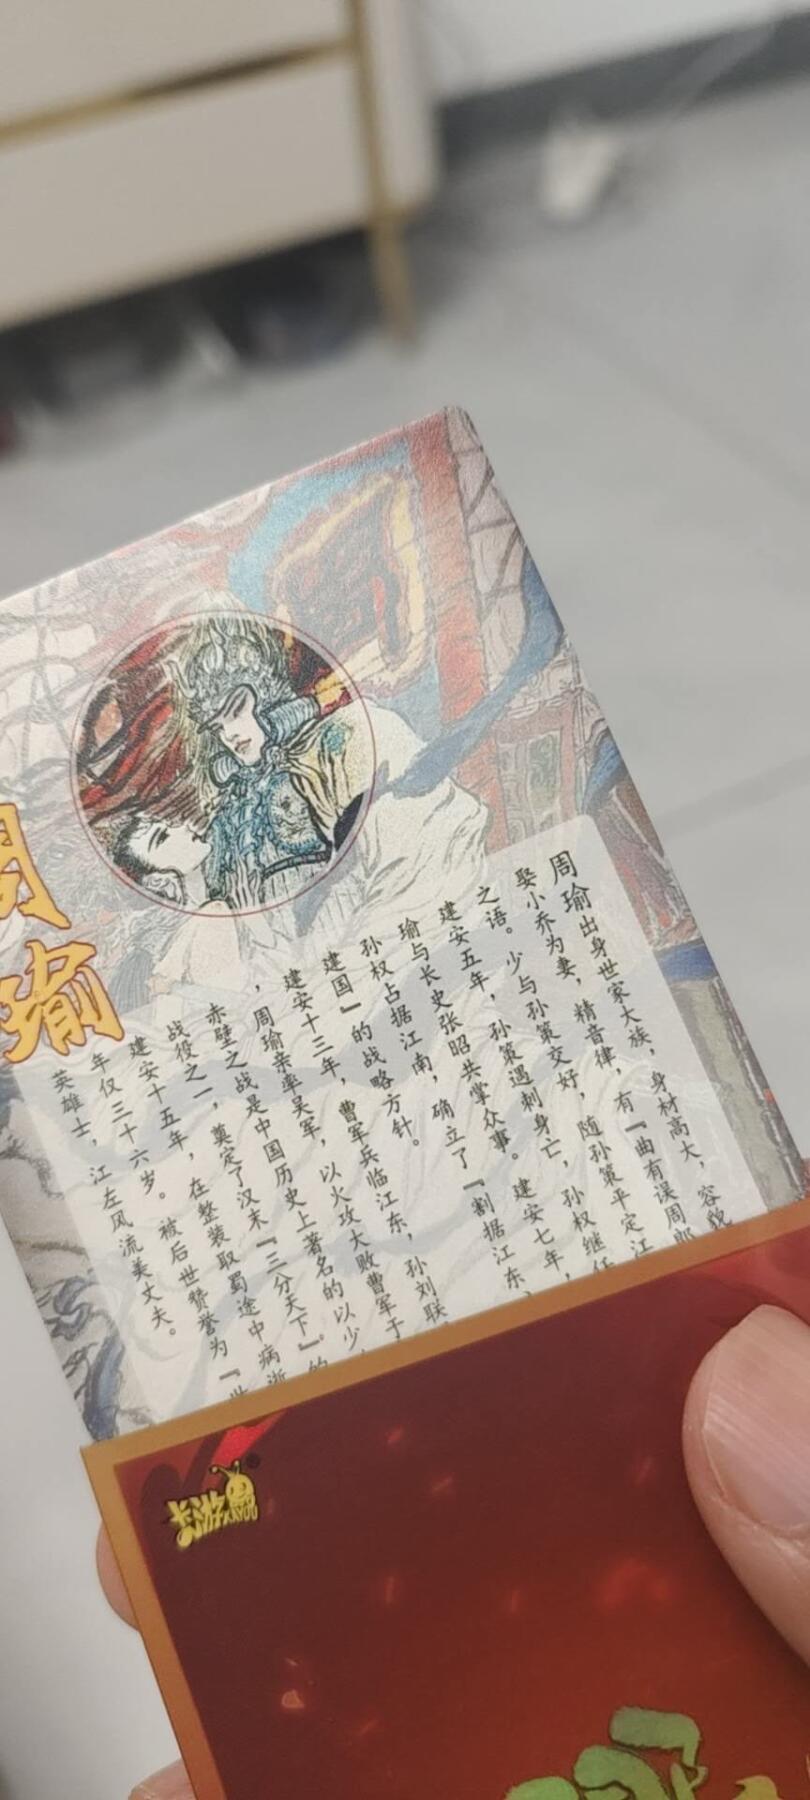 周瑜
周瑜出身世家大族，身材高大，容貌
娶小乔为妻，精音律，有『曲有误周郎
之语。少与孙策交好，随孙策平定江
建安五年，孙策遇刺身亡，孙权继任
瑜与长史张昭共掌众事。建安七年，
孙权占据江南，确立了『割据江东
建国』的战略方针。
建安十三年，曹军兵临江东，孙刘联
，周瑜亲率吴军，以火攻大败曹军于
赤壁之战是中国历史上著名的以少
战役之一，奠定了汉末『三分天下』的
建安十五年，在整装取蜀途中病逝
年仅三十六岁。被后世赞誉为『世
英雄士，江左风流美丈夫。
卡游 KAYOU